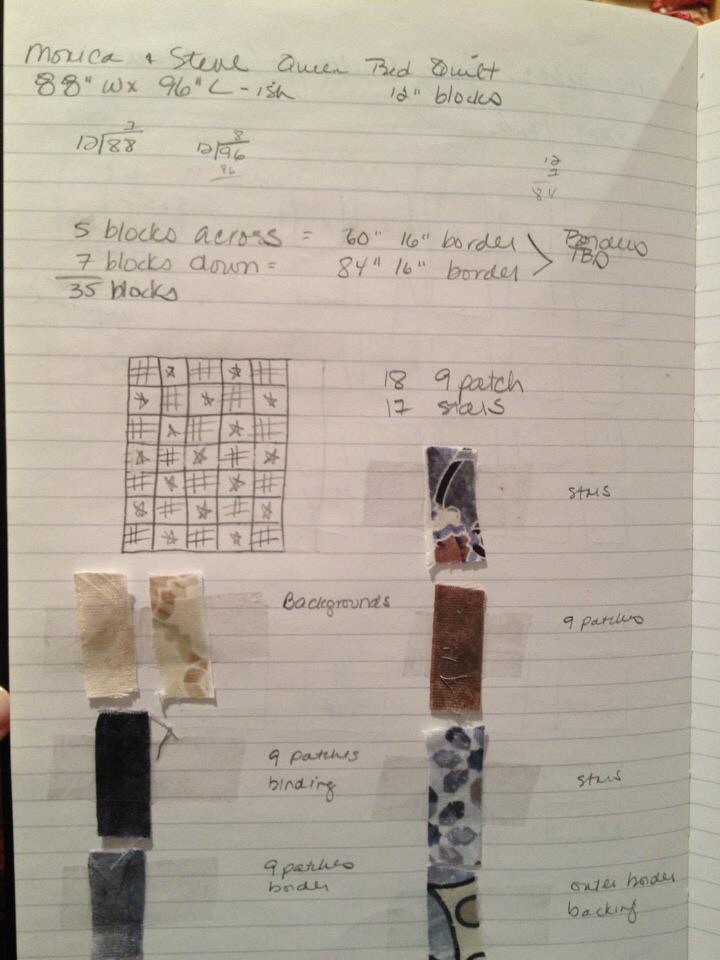 Monica + Steve Queen Bed Quilt
88" W x 96" L - ish 12" blocks
7
12)88
8
12)96
96
12
7
84
5 blocks across = 60" 16" border
7 blocks down = 84" 16" border
Borders
TBD
35 blocks
18 9 patch
17 stars
stars
Backgrounds
9 patches
9 patches
binding
stars
9 patches
border
outer border
backing